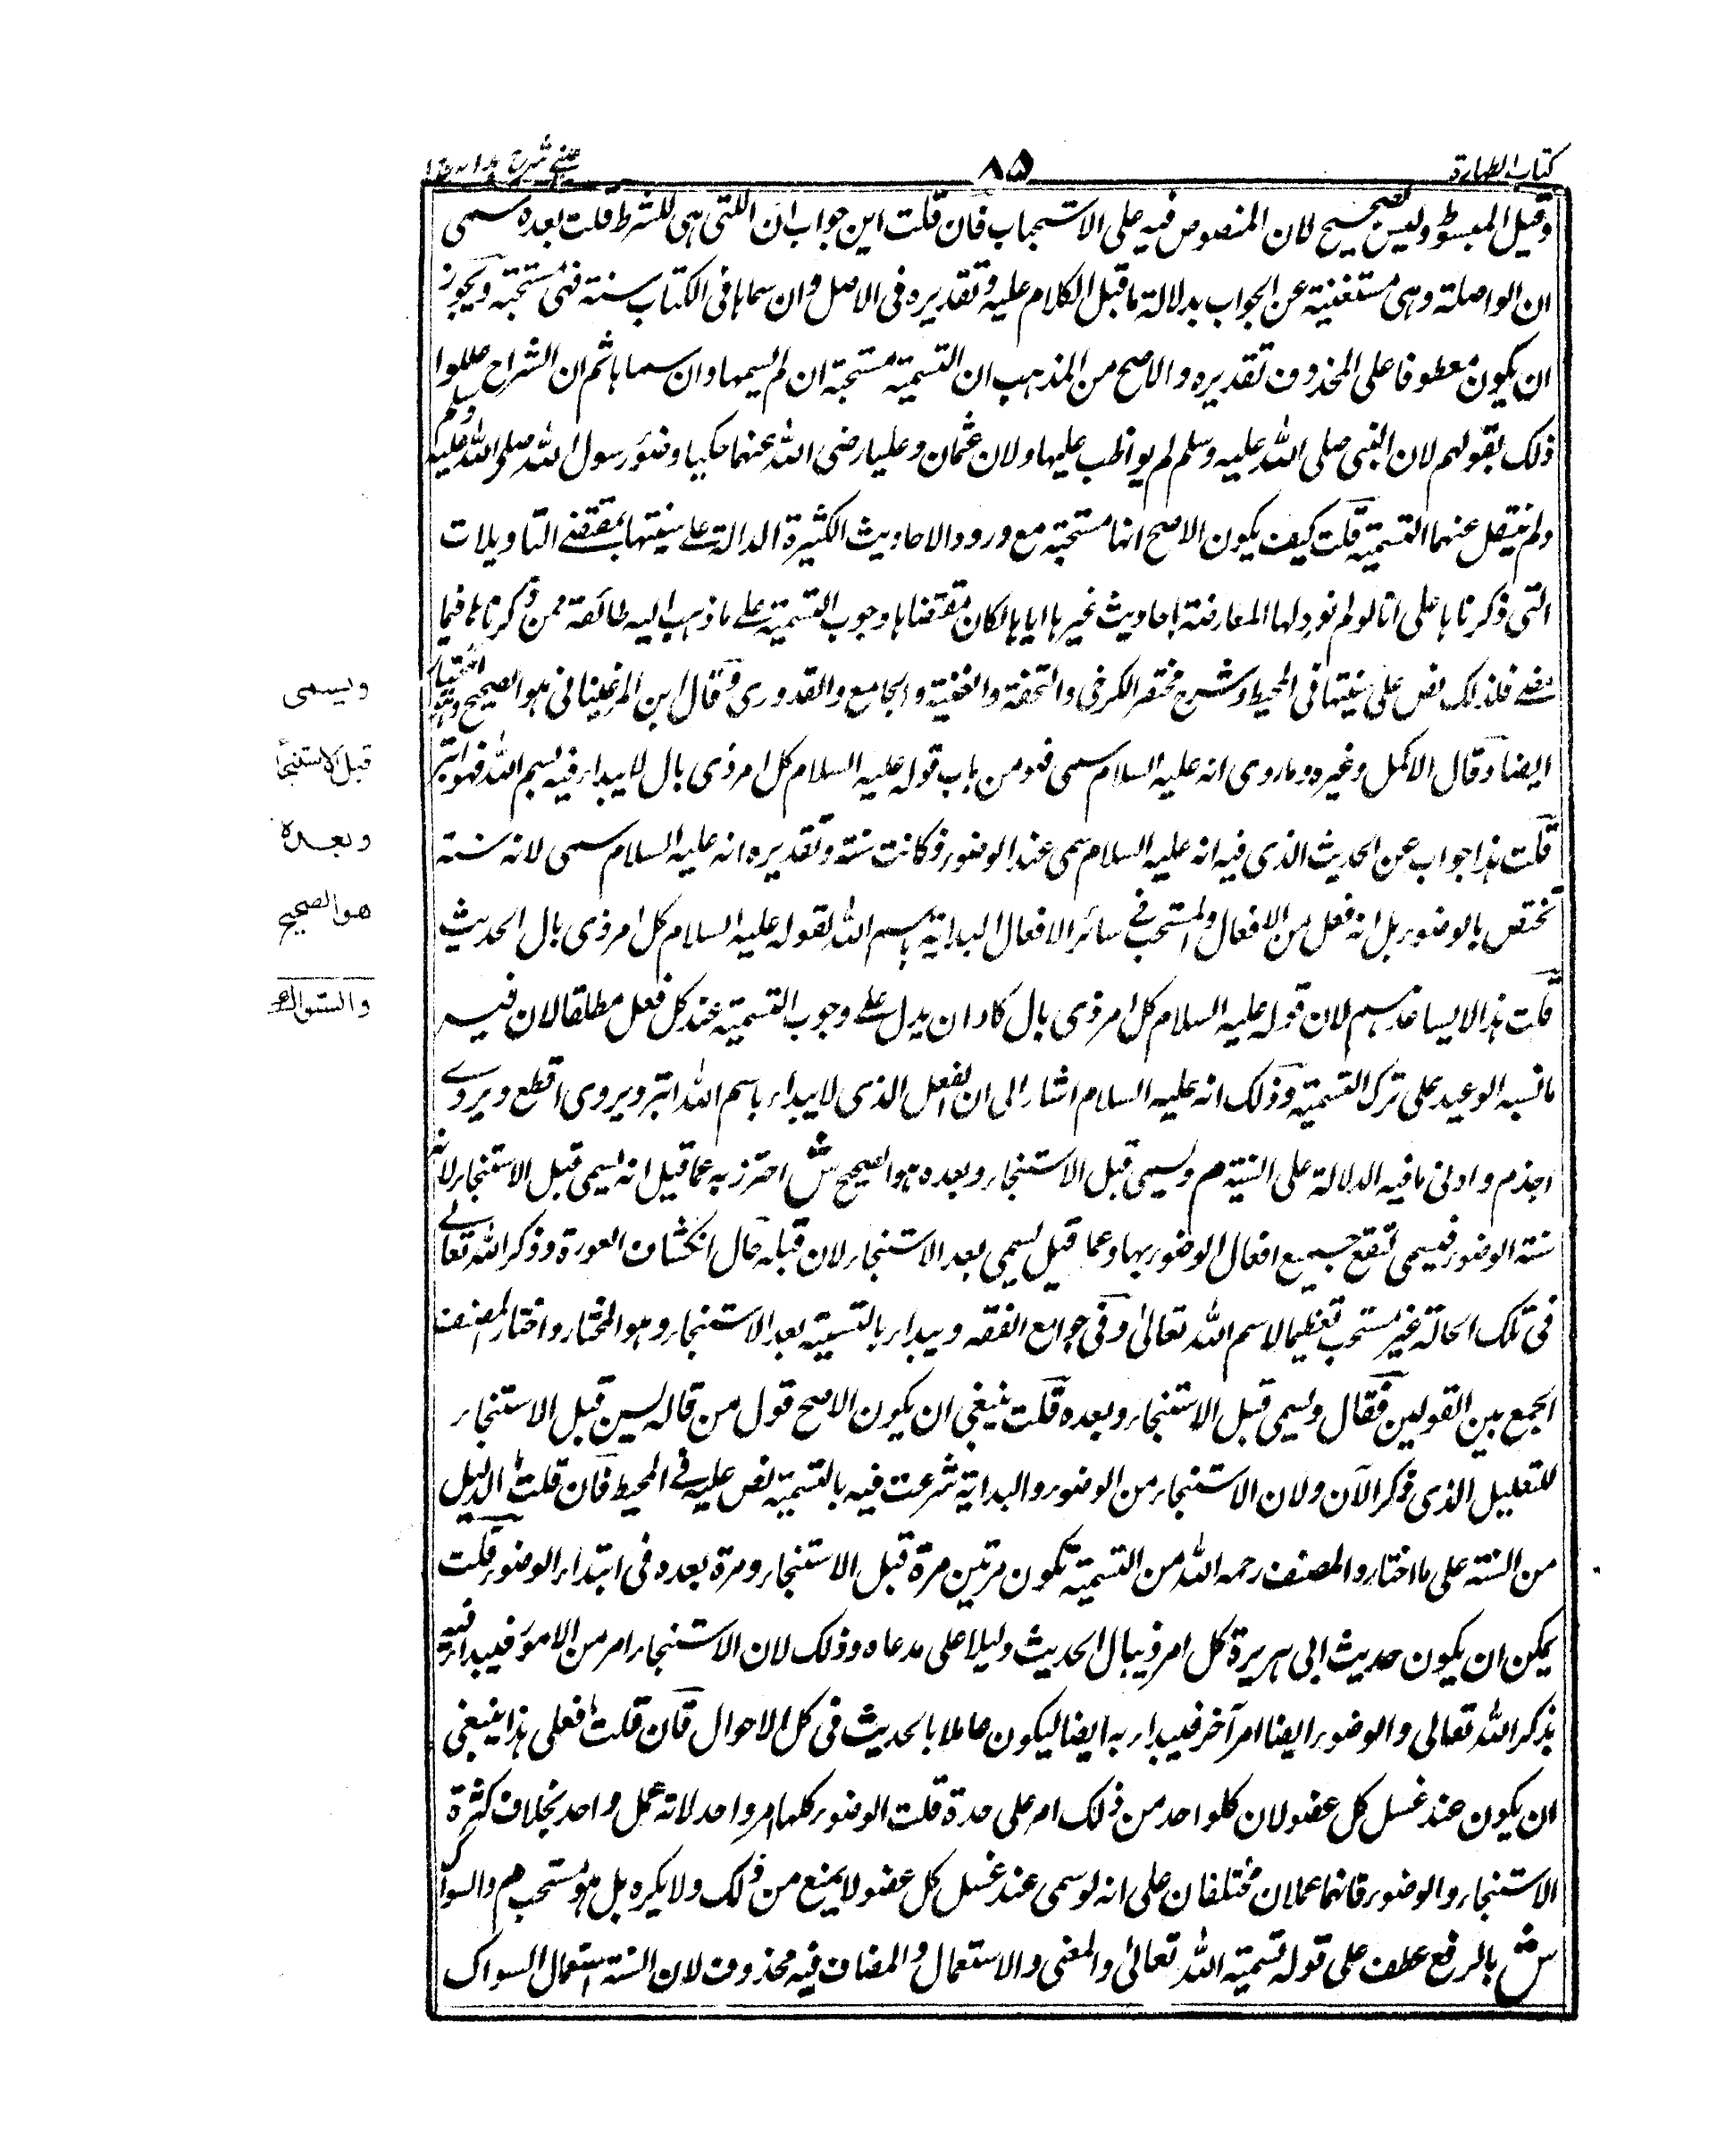 كتاب الطهارة
٨٥
عيني شرح هداية ج ١
وقيل المبسوط وليس بصحيح لان المنصوص فيه على الاستحباب فان قلت اين جواب ان اللتى هى للشرط قلت بعده سمى
ان الواصلة وهى مستغنية عن الجواب بدلالة ما قبل الكلام عليه وتقديره فى الاصل وان سماها فى الكتاب سنة فهى مستحبة ويجوز
ان يكون معطوفا على المحذوف تقديره والاصح من المذهب ان التسمية مستحبة ان لم يسمها وان سماها ثم ان الشراح عللوا
ذلك بقولهم لان النبى صلى الله عليه وسلم لم يواظب عليها ولان عثمان وعليا رضى الله عنهما حكيا وضوء رسول الله صلى الله عليه وسلم
ولم ينقل عنهما التسمية قلت كيف يكون الاصح انها مستحبة مع ورود الاحاديث الكثيرة الدالة على سنيتها بمقتضے التاويلات
التى ذكرناها على انا لو لم نود لها المعارضة باحاديث غيرها اياها لكان مقتضاها وجوب التسمية على ما ذهب اليه طائفة ممن ذكرناهم فيما
مضے فلذلك نص على سنيتها فى المحيط وشرح مختصر الكرخى والتحفة والغنية والجامع والقدورى وقال ابن المرغينانى هو الصحيح وهو المختار
ايضا وقال الاكمل وغيره وما روى انه عليه السلام سمى فهو من باب قوله عليه السلام كل امر ذى بال لا يبدار فيه بسم الله فهو ابتر
قلت هذا جواب عن الحديث الذى فيه انه عليه السلام سمى عند الوضوء فكانت سنة وتقديره انه عليه السلام سمى لانه سنة
تختص بالوضوء بل انه فعل من الافعال والمستحب فے سائر الافعال البداية باسم الله لقوله عليه السلام كل امر ذى بال الحديث
قلت هذا لا يساعدهم لان قوله عليه السلام كل امر ذى بال كاد ان يدل على وجوب التسمية عند كل فعل مطلقا لان فيه
ما نسبه الوعيد على ترك التسمية وذلك انه عليه السلام اشار الى ان الفعل الذى لا يبداء باسم الله ابتر ويروى اقطع ويروے
اجذم وادنى ما فيه الدلالة على السنية م ويسمى قبل الاستنجاء وبعده هو الصحيح ش احترز به عما قيل انه يسمى قبل الاستنجاء لانه
سنة الوضوء فيسمى لتقع جميع افعال الوضوء بها وعما قيل يسمى بعد الاستنجاء لان قبله حال انكشاف العورة وذكر الله تعالے
فى تلك الحالة غير مستحب تعظيما لاسم الله تعالى وفى جوامع الفقه ويبدا بالتسمية بعد الاستنجاء وهو المختار واختار المصنف
الجمع بين القولين فقال ويسمى قبل الاستنجاء وبعده قلت ينبغى ان يكون الاصح قول من قال يسن قبل الاستنجاء
للتعليل الذى ذكر الآن ولان الاستنجاء من الوضوء والبداية شرعت فيه بالتسمية نص عليه فے المحيط فان قلت ما الدليل
من السنة على ما اختاره المصنف رحمه الله من التسمية تكون مرتين مرة قبل الاستنجاء ومرة بعده فى ابتداء الوضوء قلت
يمكن ان يكون حديث ابى هريرة كل امر ذى بال الحديث دليلا على مدعاه وذلك لان الاستنجاء امر من الامور فيبدا فيه
بذكر الله تعالى والوضوء ايضا امر آخر فيبدا به ايضا ليكون عاملا بالحديث فى كل الاحوال فان قلت فعلى هذا ينبغى
ان يكون عند غسل كل عضو لان كل واحد من ذلك امر على حدة قلت الوضوء كلها امر واحد لانه عمل واحد بخلاف كثرة
الاستنجاء والوضوء فانهما عملان مختلفان على انه لو سمى عند غسل كل عضو لا يمنع من ذلك ولا يكره بل هو مستحب م والسواك
ش بالرفع عطف على قوله تسمية الله تعالى والمعنى والاستعمال والمضاف فيه محذوف لان السنة استعمال السواك
ويسمى
قبل الاستنجا
وبعده
هو الصحيح
والسواك